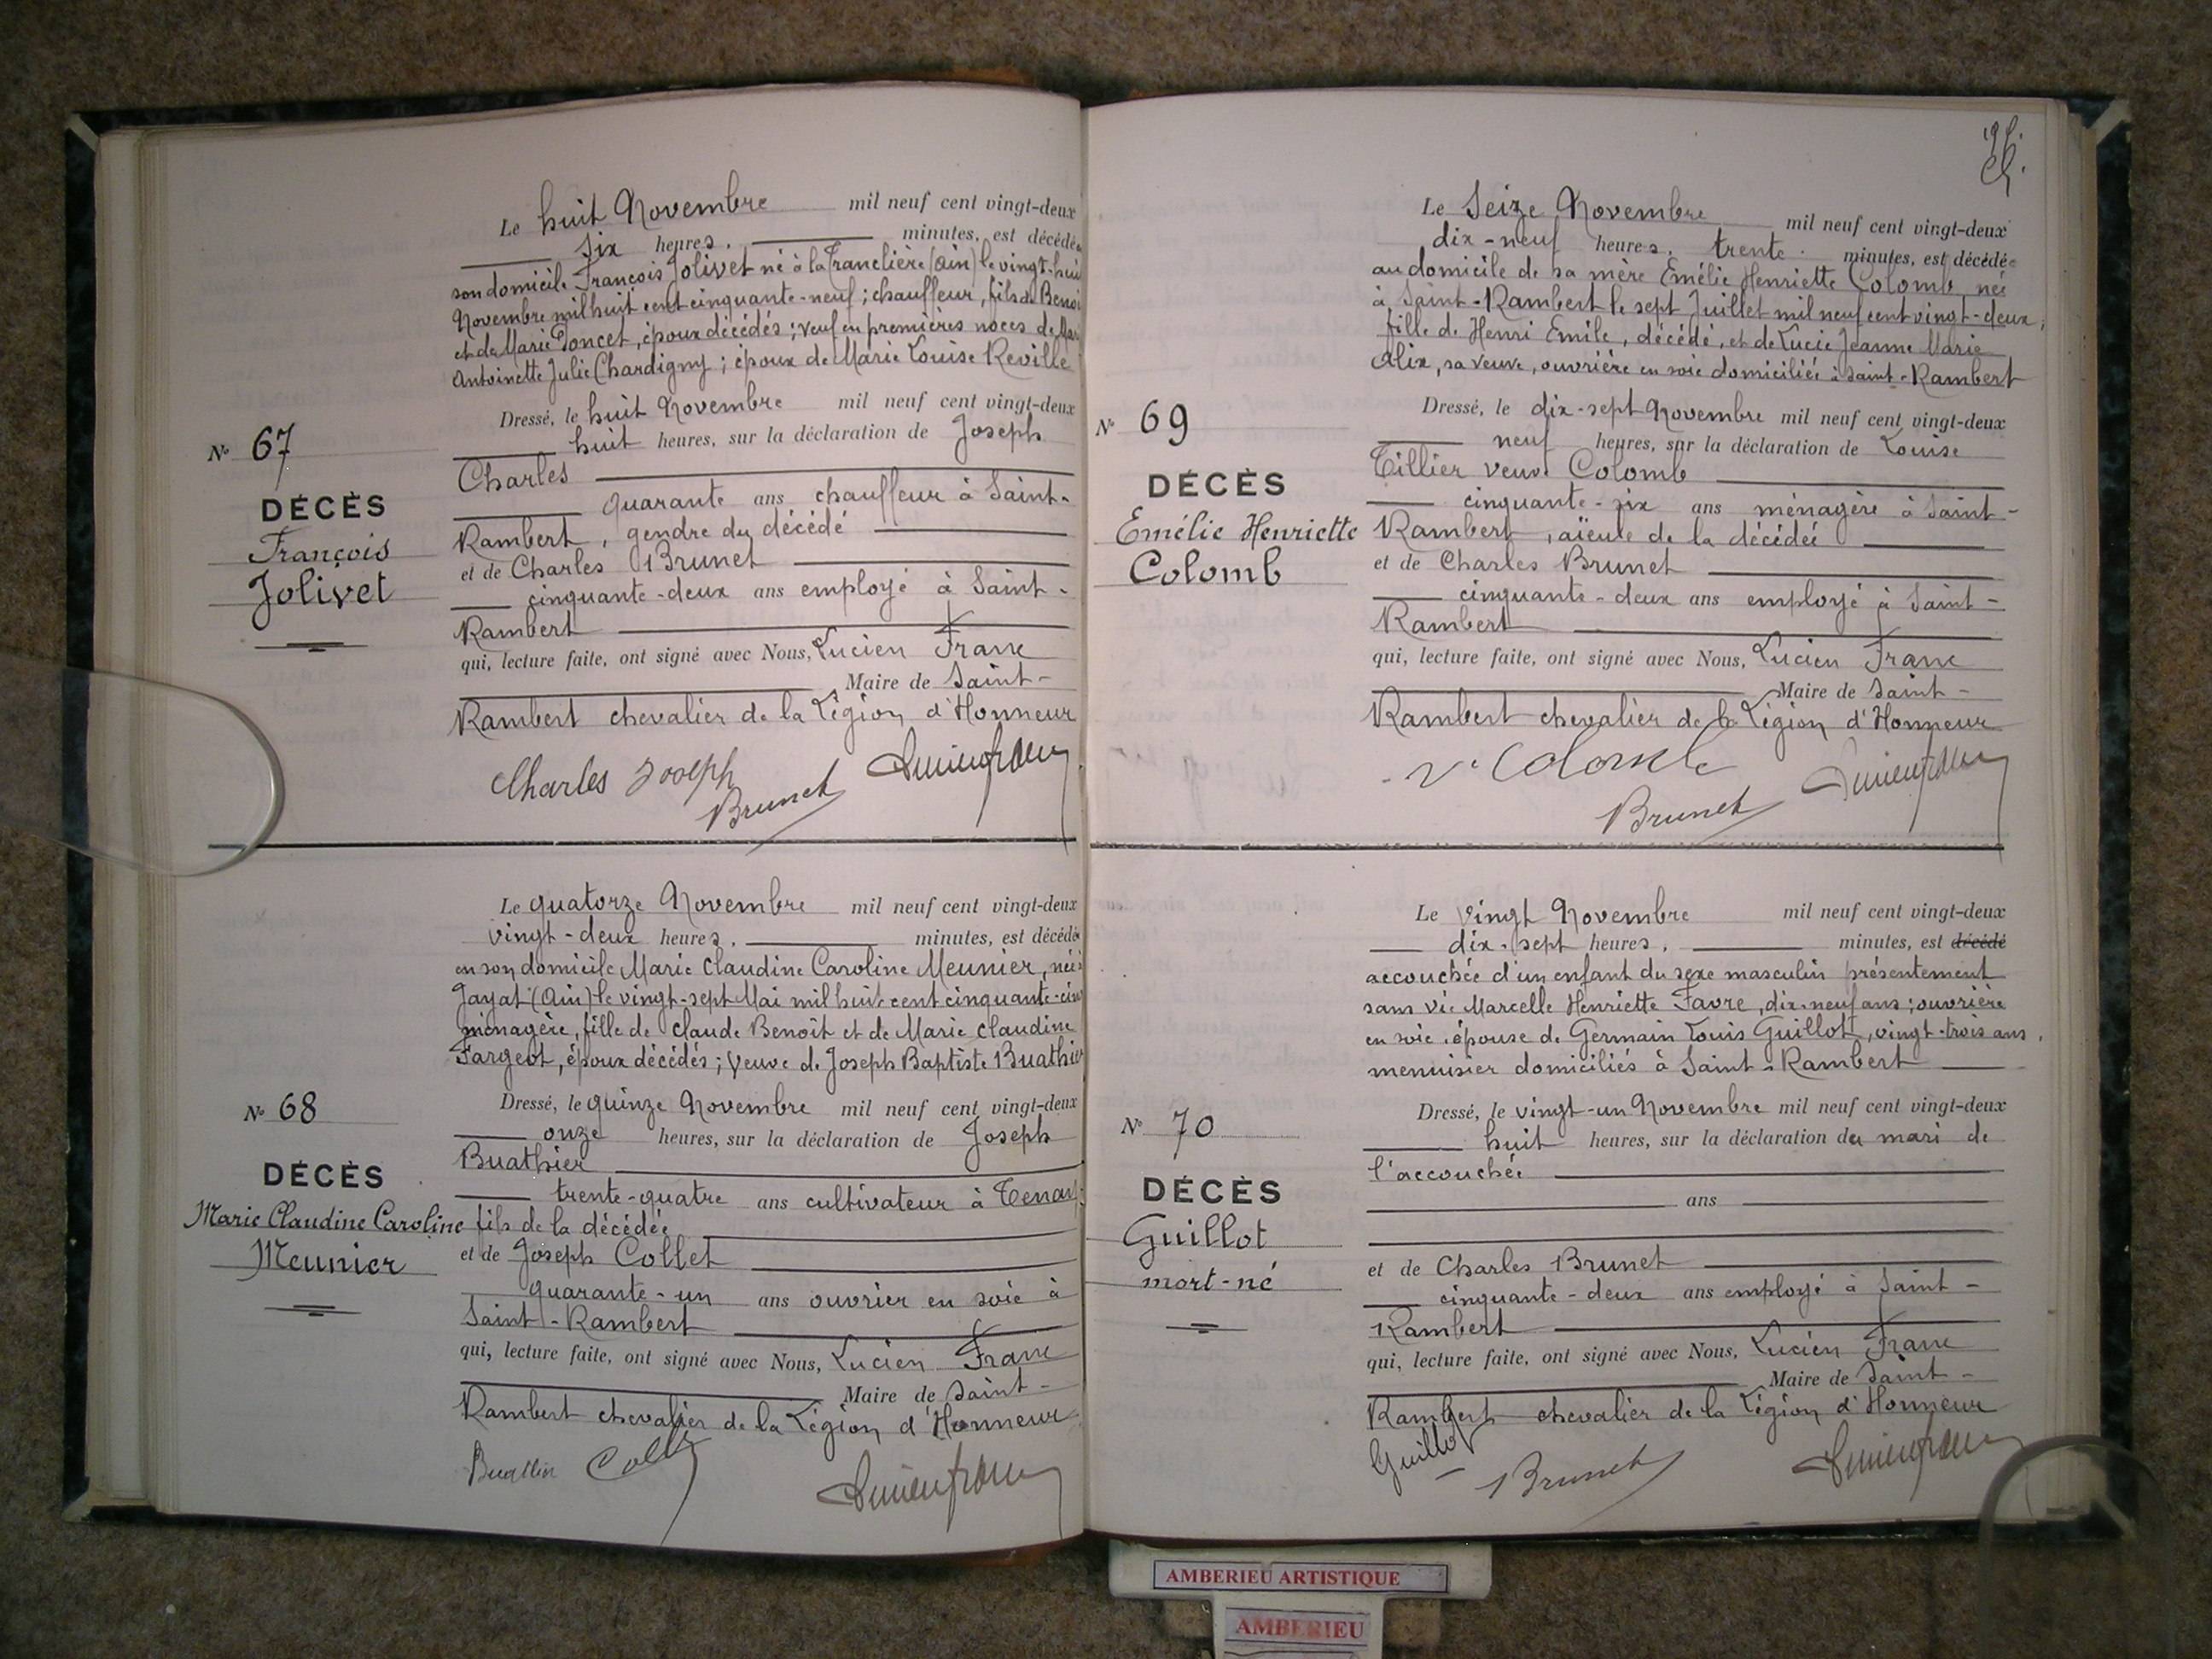 Le huit Novembre mil neuf cent vingt-deux
six heures, minutes, est décédé
son domicile François Jolivet né à la Tranclière (Ain) le vingt-huit
Novembre mil huit cent cinquante-neuf; chauffeur, fils de Benoi
et de Marie Poncet, époux décédés; veuf en premières noces de
Antoinette Julie Chardigny; époux de Marie Louise Reville
Dressé, le huit Novembre mil neuf cent vingt-deux
huit heures, sur la déclaration de Joseph
Charles
quarante ans chauffeur à Saint-
Rambert, gendre du décédé
et de Charles Brunet
cinquante-deux ans employé à Saint-
Rambert
qui, lecture faite, ont signé avec Nous, Lucien Franc
Maire de Saint-
Rambert chevalier de la Légion d'Honneur
Charles Joseph
Brunet
No 67
DÉCÈS
François
Jolivet
Le quatorze Novembre mil neuf cent vingt-deux
vingt-deux heures, minutes, est décédée
en son domicile Marie Claudine Caroline Meunier, née à
Jayat (Ain) le vingt-sept Mai mil huit cent cinquante-cinq
ménagère, fille de Claude Benoît et de Marie Claudine
Fargeot, époux décédés; veuve de Joseph Baptiste Buathier
Dressé, le quinze Novembre mil neuf cent vingt-deux
onze heures, sur la déclaration de Joseph
Buathier
trente-quatre ans cultivateur à
fils de la décédée
et de Joseph Collet
quarante-un ans ouvrier en soie à
Saint-Rambert
qui, lecture faite, ont signé avec Nous, Lucien Franc
Maire de Saint-
Rambert chevalier de la Légion d'Honneur
No 68
DÉCÈS
Marie Claudine Caroline
Meunier
Le Seize Novembre mil neuf cent vingt-deux
dix-neuf heures, trente minutes, est décédée
au domicile de sa mère Emélie Henriette Colomb née
à Saint-Rambert le sept Juillet mil neuf cent vingt-deux,
fille de Henri Emile, décédé, et de Lucie Jeanne Marie
Alix, sa veuve, ouvrière en soie domiciliée à Saint-Rambert
Dressé, le dix-sept Novembre mil neuf cent vingt-deux
neuf heures, sur la déclaration de Louise
Tillier veuve Colomb
cinquante-six ans ménagère à Saint-
Rambert, aïeule de la décédée
et de Charles Brunet
cinquante-deux ans employé à Saint-
Rambert
qui, lecture faite, ont signé avec Nous, Lucien Franc
Maire de Saint-
Rambert chevalier de la Légion d'Honneur
Ve Colomb
Brunet
No 69
DÉCÈS
Emélie Henriette
Colomb
Le vingt Novembre mil neuf cent vingt-deux
dix-sept heures, minutes, est décédé
accouchée d'un enfant du sexe masculin présentement
sans vie Marcelle Henriette Favre, dix-neuf ans; ouvrière
en soie, épouse de Germain Louis Guillot, vingt-trois ans,
menuisier domiciliés à Saint-Rambert
Dressé, le vingt-un Novembre mil neuf cent vingt-deux
huit heures, sur la déclaration du mari de
l'accouchée
ans
et de Charles Brunet
cinquante-deux ans employé à Saint-
Rambert
qui, lecture faite, ont signé avec Nous, Lucien Franc
Maire de Saint-
Rambert chevalier de la Légion d'Honneur
Guillot
Brunet
No 70
DÉCÈS
Guillot
mort-né
AMBERIEU ARTISTIQUE
AMBERIEU